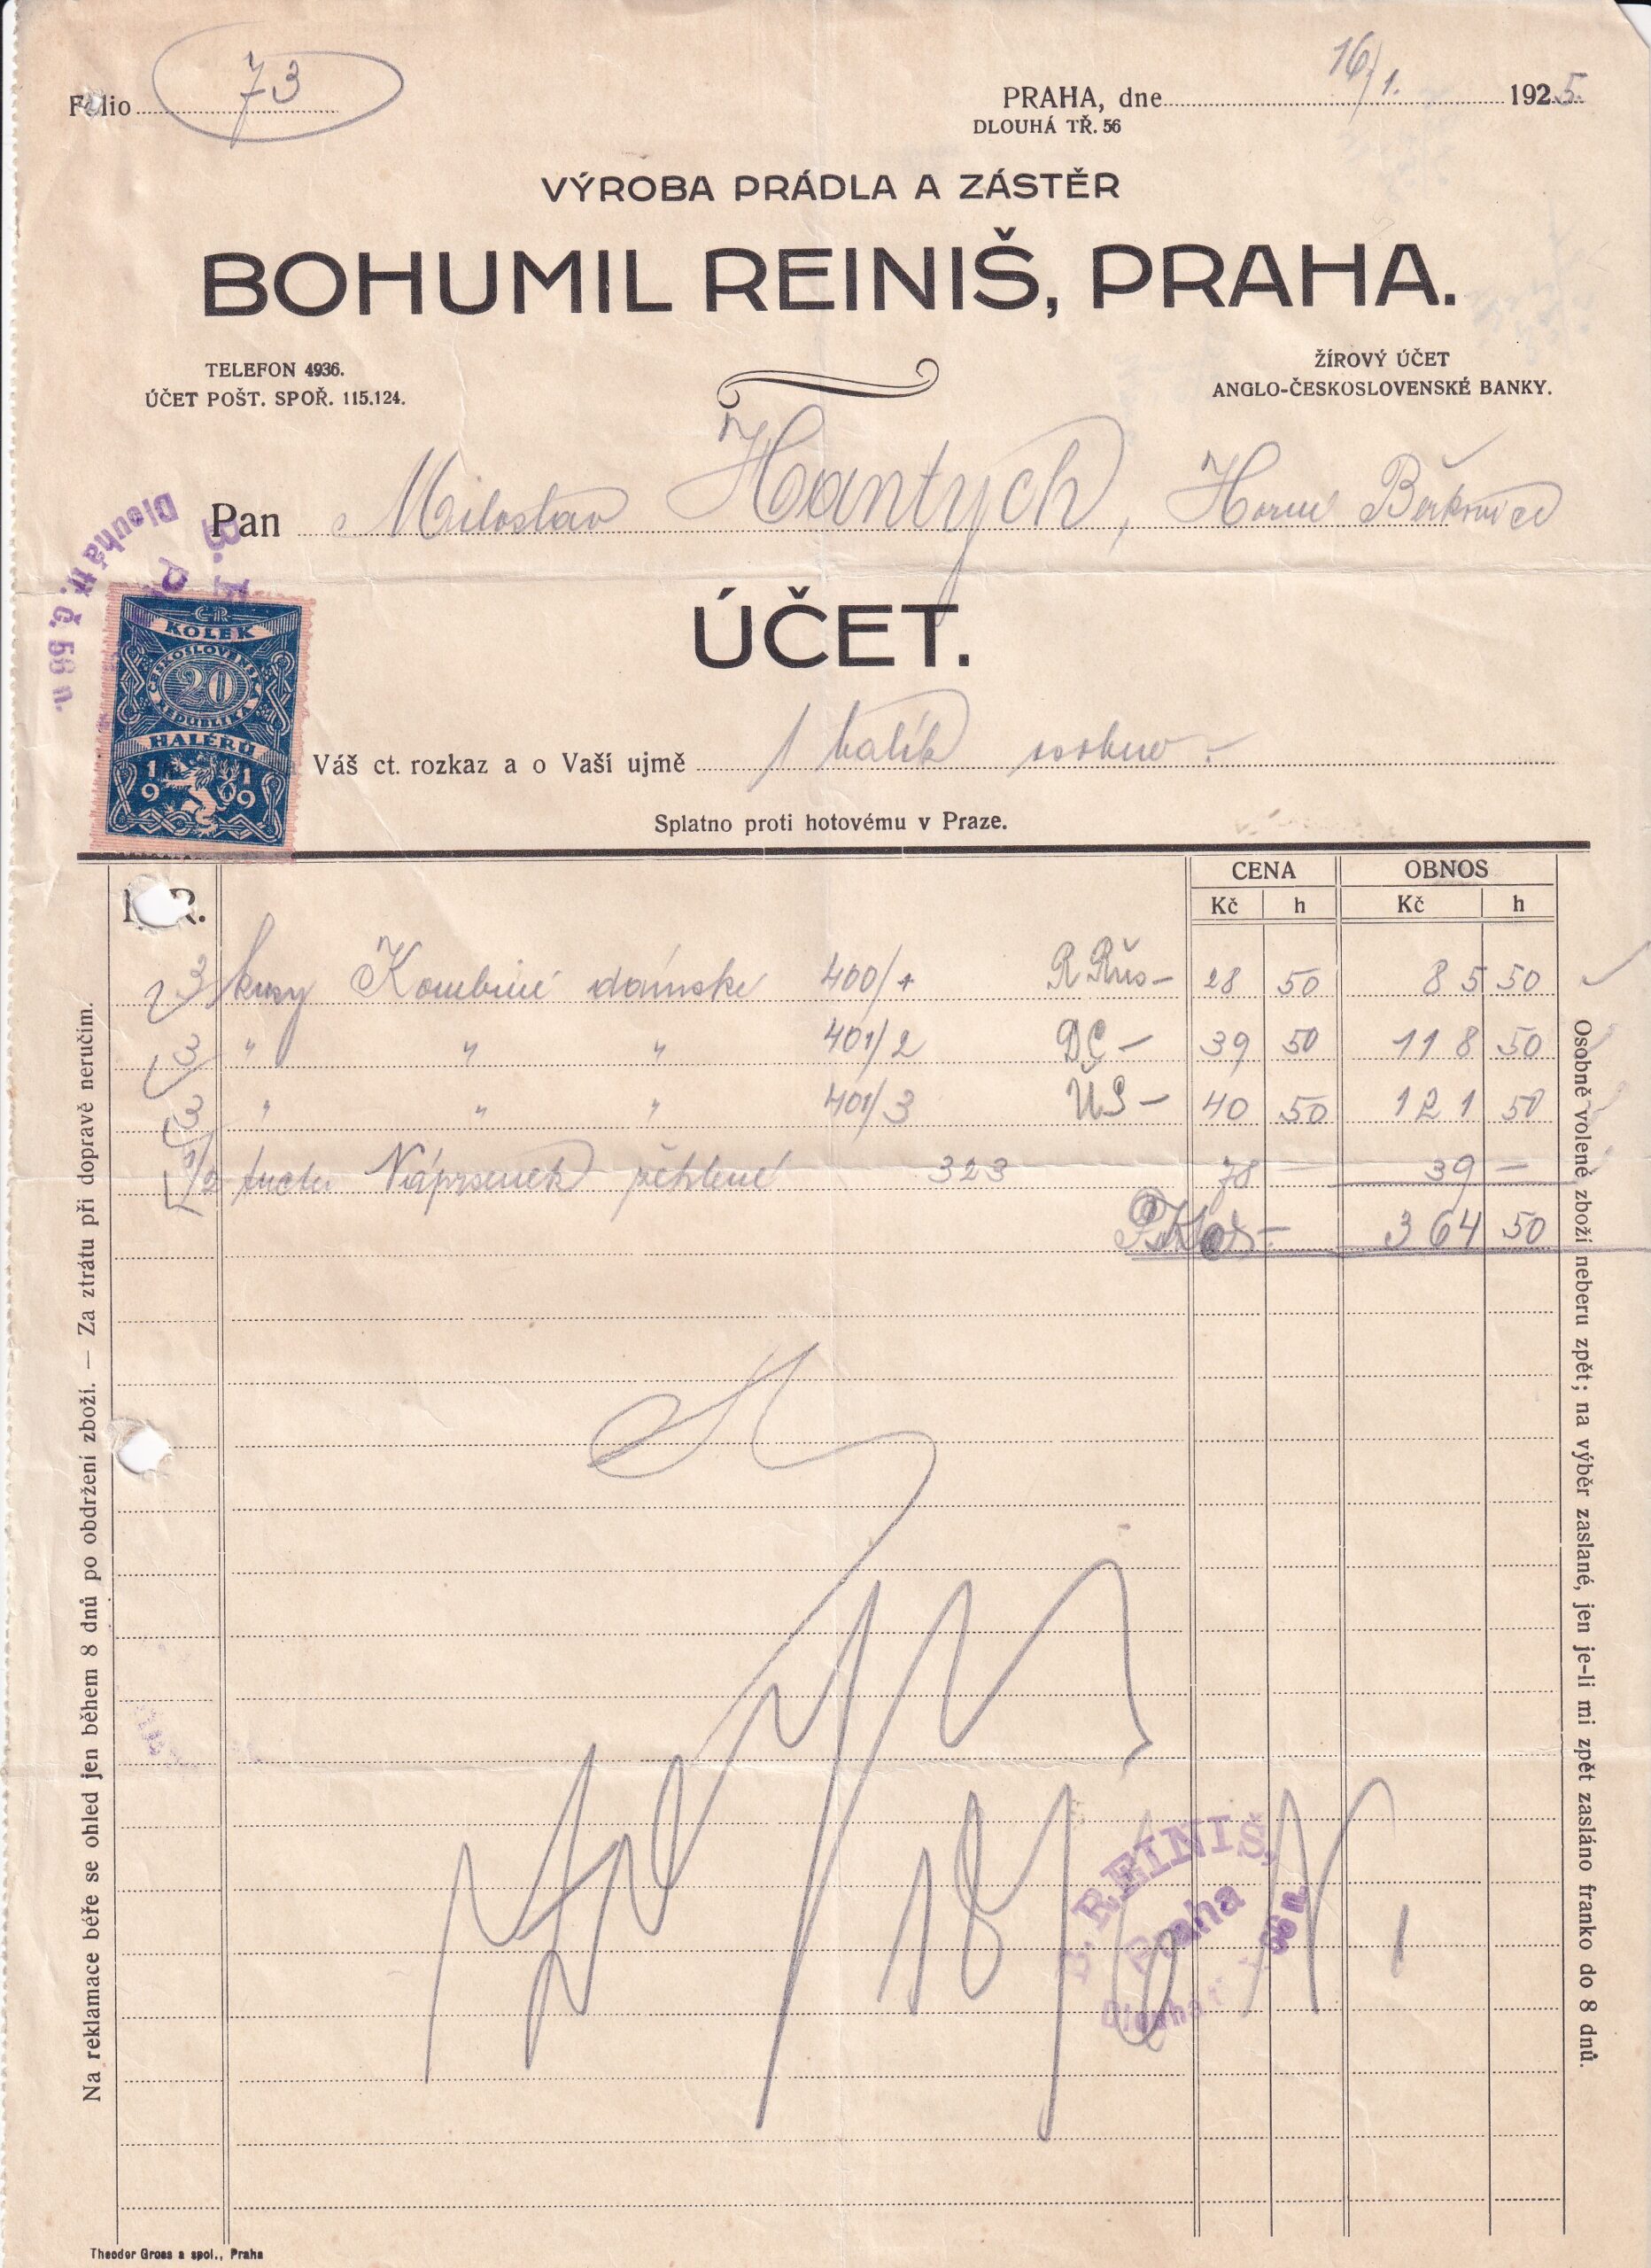 Folio 73
PRAHA, dne 16/1. 1925.
DLOUHÁ TŘ. 56
VÝROBA PRÁDLA A ZÁSTĚR
BOHUMIL REINIŠ, PRAHA.
TELEFON 4936.
ÚČET POŠT. SPOŘ. 115.124.
ŽÍROVÝ ÚČET
ANGLO-ČESKOSLOVENSKÉ BANKY.
Pan Miloslav Hantych, Horní Beřkovice
Dlouhá tř. č. 56 n.
ÚČET.
ČR
KOLEK
ČESKOSLOVENSKÁ
20
REPUBLIKA
HALÉŘŮ
1919
Váš ct. rozkaz a o Vaší ujmě 1 balík osobně.
Splatno proti hotovému v Praze.
CENA OBNOS
Kč h Kč h
3 kusy Kombiné dámské 400/1 28 50 85 50
3 " " " 401/2 DC — 39 50 118 50
3 " " " 401/3 US — 40 50 121 50
1/2 tuctu Náprsenek 323 78 — 39 —
364 50
Na reklamace béře se ohled jen během 8 dnů po obdržení zboží. — Za ztrátu při dopravě neručím.
Osobně volené zboží neberu zpět; na výběr zaslané, jen je-li mi zpět zasláno franko do 8 dnů.
B. REINIŠ,
Praha
Dlouhá 56 n.
Theodor Gross a spol., Praha